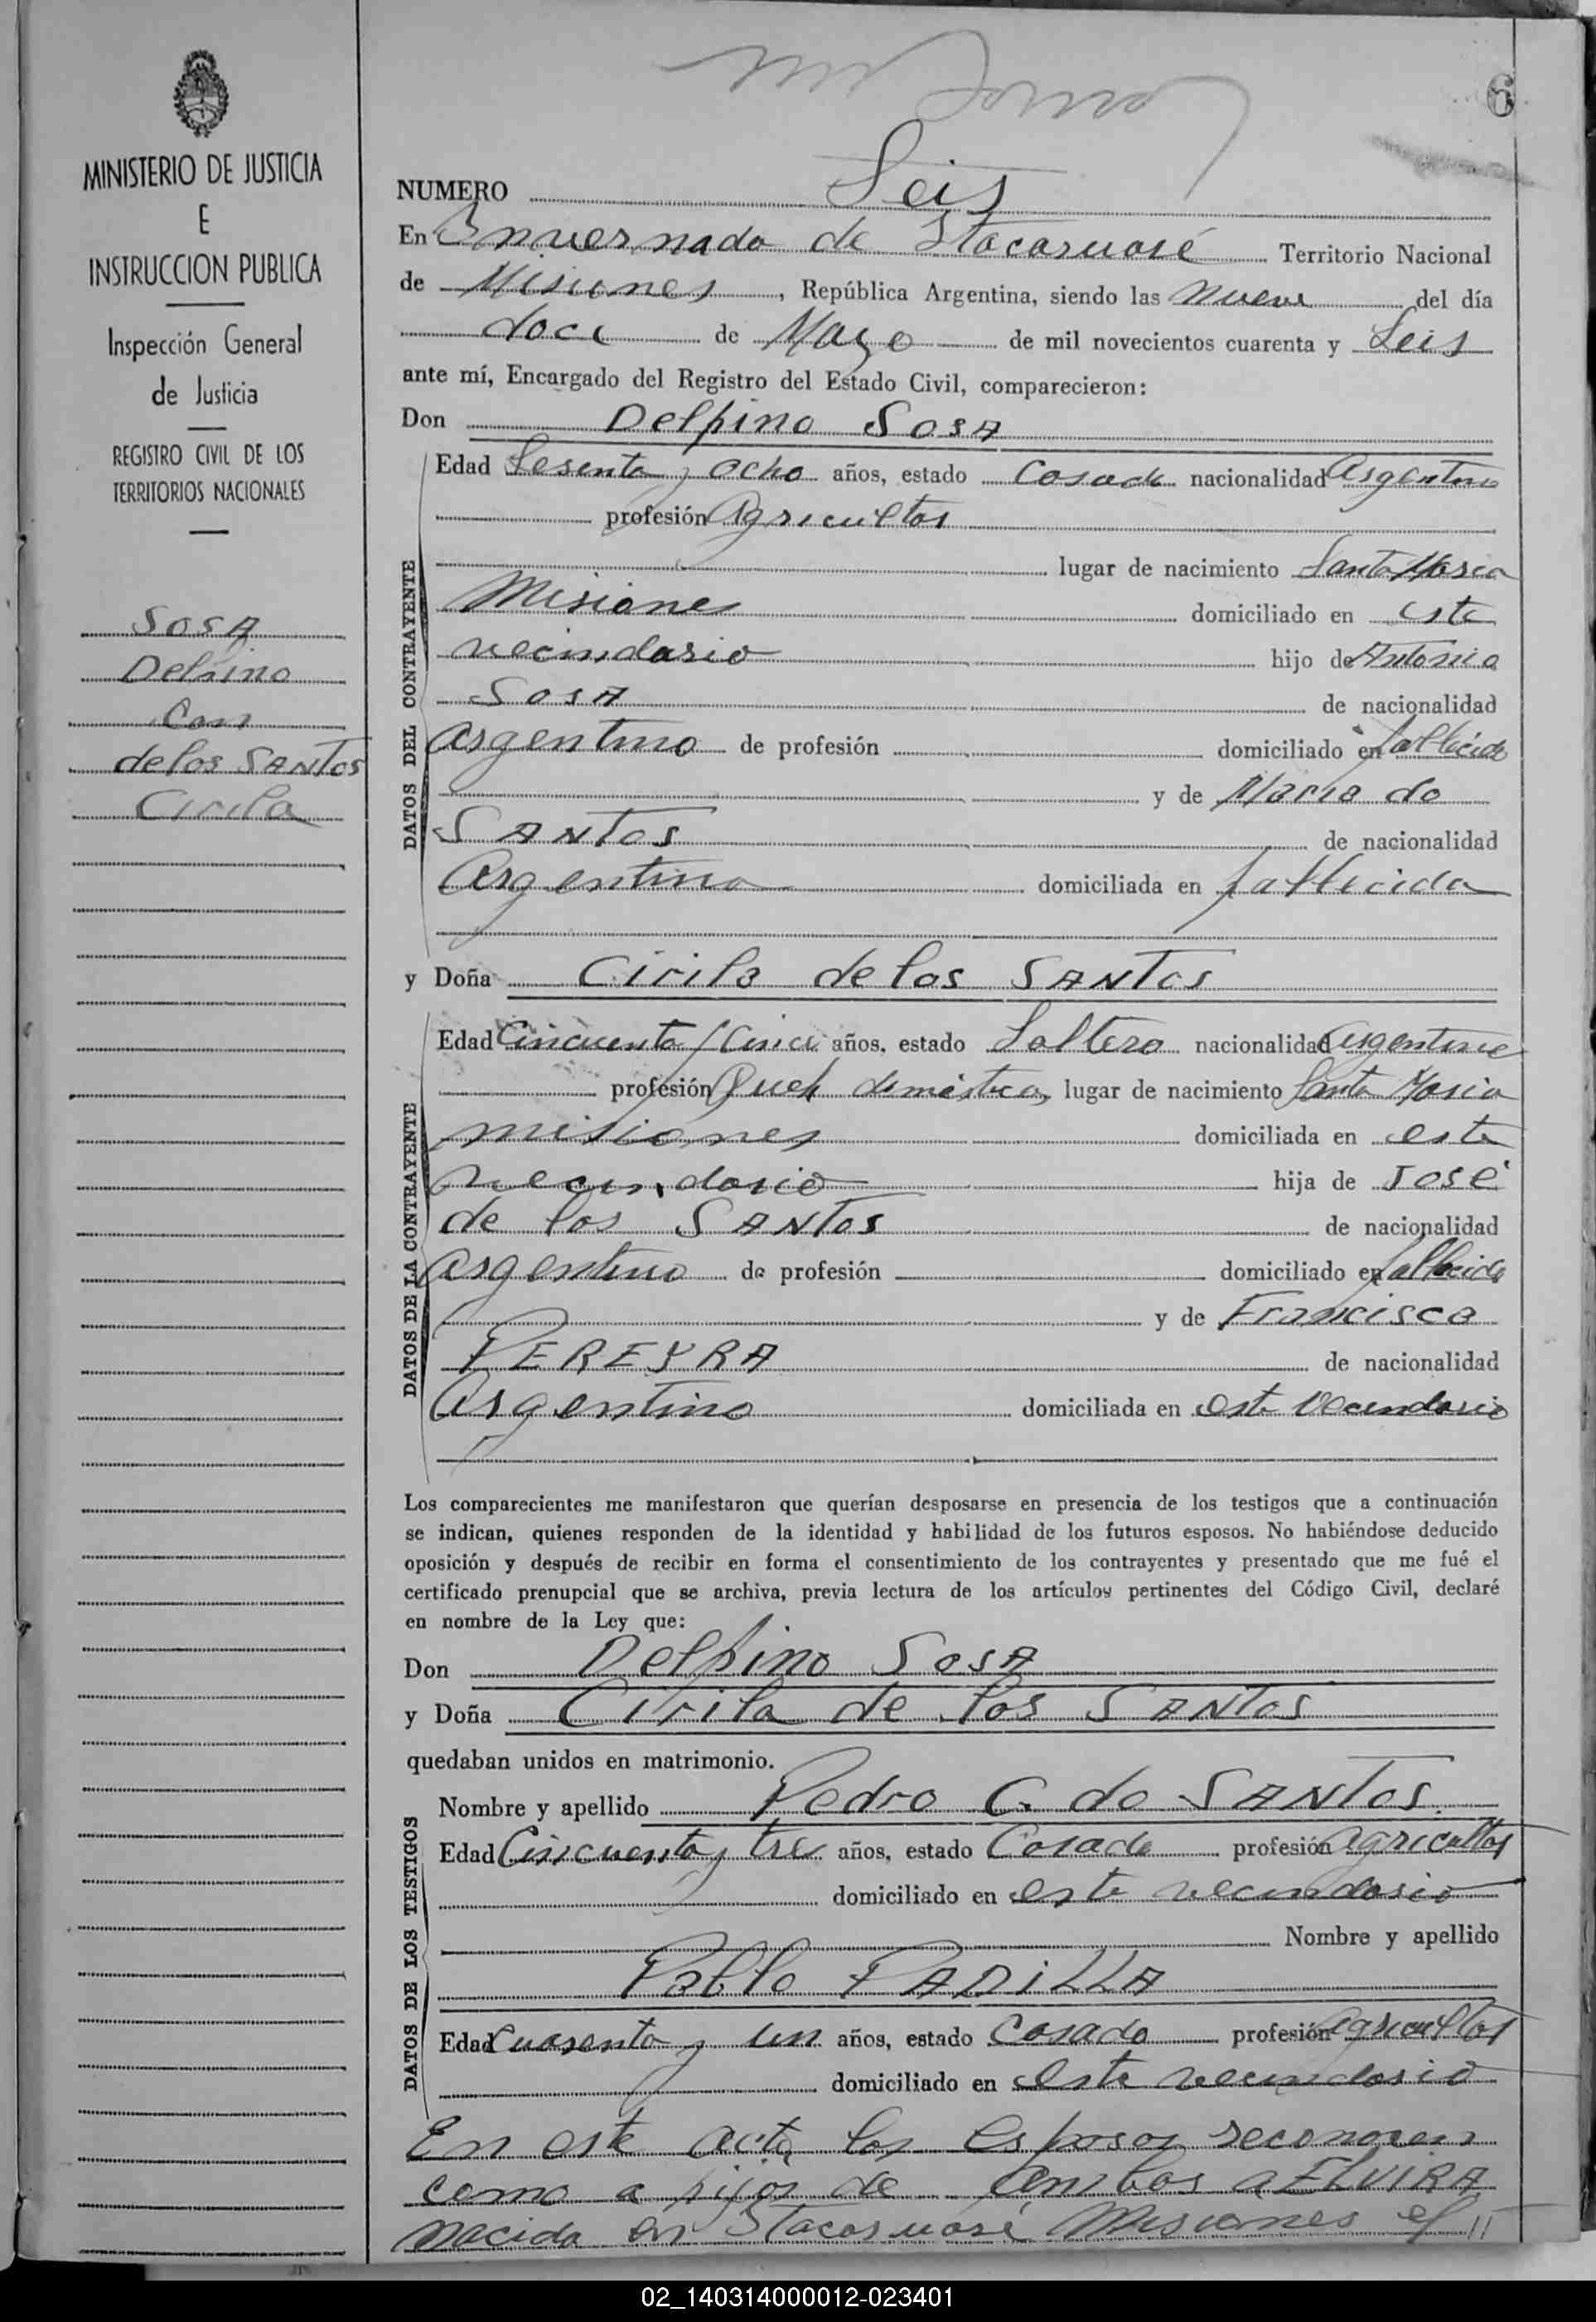 6
MINISTERIO DE JUSTICIA
E
INSTRUCCION PUBLICA
Inspección General
de Justicia
REGISTRO CIVIL DE LOS
TERRITORIOS NACIONALES
SOSA
Delfino
Con
de los SANTOS
Cirila
NUMERO Seis
En Invernada de Itacaruaré Territorio Nacional
de Misiones, República Argentina, siendo las nueve del día
doce de Mayo de mil novecientos cuarenta y Seis
ante mí, Encargado del Registro del Estado Civil, comparecieron:
Don Delfino SOSA
DATOS DEL CONTRAYENTE
Edad Sesenta y ocho años, estado Casado nacionalidad Argentino
profesión Agricultor
lugar de nacimiento Santa Maria
Misiones domiciliado en este
vecindario hijo de Antonio
SOSA de nacionalidad
argentino de profesión domiciliado en fallecido
y de Maria do
SANTOS de nacionalidad
Argentina domiciliada en fallecida
y Doña Cirila de los SANTOS
DATOS DE LA CONTRAYENTE
Edad Cincuenta y Cinco años, estado Soltera nacionalidad argentina
profesión Queh. domésticos, lugar de nacimiento Santa Maria
misiones domiciliada en este
vecindario hija de José
de los SANTOS de nacionalidad
argentino de profesión domiciliado en fallecido
y de Francisca
PEREYRA de nacionalidad
Argentina domiciliada en este vecindario
Los comparecientes me manifestaron que querían desposarse en presencia de los testigos que a continuación
se indican, quienes responden de la identidad y habilidad de los futuros esposos. No habiéndose deducido
oposición y después de recibir en forma el consentimiento de los contrayentes y presentado que me fué el
certificado prenupcial que se archiva, previa lectura de los artículos pertinentes del Código Civil, declaré
en nombre de la Ley que:
Don Delfino SOSA
y Doña Cirila de los SANTOS
quedaban unidos en matrimonio.
DATOS DE LOS TESTIGOS
Nombre y apellido Pedro C. do SANTOS
Edad Cincuenta y tres años, estado Casado profesión agricultor
domiciliado en este vecindario
Nombre y apellido
Pablo PADILLA
Edad Cuarenta y un años, estado Casado profesión agricultor
domiciliado en este vecindario
En este acto los esposos reconocen
como a hijos de ambos a ELVIRA
nacida en Itacaruaré Misiones el 11
02_140314000012-023401